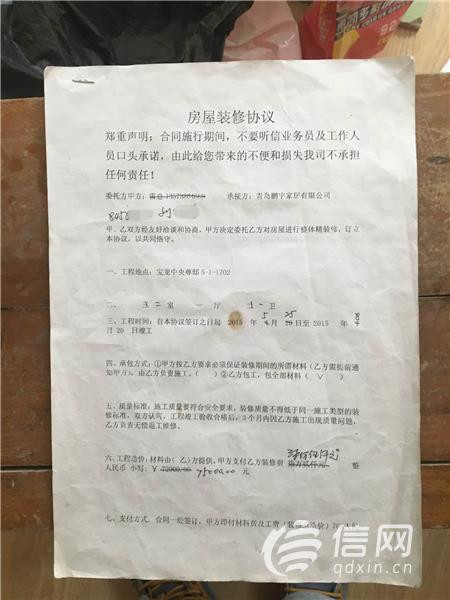 房屋装修协议
郑重声明：合同施行期间，不要听信业务员及工作人
员口头承诺，由此给您带来的不便和损失我司不承担
任何责任！
委托方甲方： 承接方：青岛鹏宇家居有限公司
甲、乙双方经友好洽谈和协商，甲方决定委托乙方对房屋进行整体精装修，订立
本协议，以共同恪守。
一、工程地点：宝龙中央尊邸 5-1-1702
二、 室 一 厅 卫
三、工程时间：自本协议签订之日起 2015 年 5 月 25 日至 2015 年 8
月 20 日竣工
四、承包方式：①甲方按乙方要求必须保证装修期间的所需材料（乙方需提前通
知甲方），由乙方负责施工。（ ）②乙方包工，包全部材料（ √ ）
五、质量标准：施工质量要符合安全要求，装修质量不得低于同一施工类型的装
修标准，双方认可，工程竣工验收合格后，3 个月内因乙方施工出现质量问题，
乙方负责无偿返工维修。
六、工程造价：材料由（ 乙）方提供，甲方支付乙方装修费 整
人民币 小写：¥ 72000.00 75000.00 元
七、支付方式、合同一经签订，甲方即付材料费及工费
信网
qdxin.cn